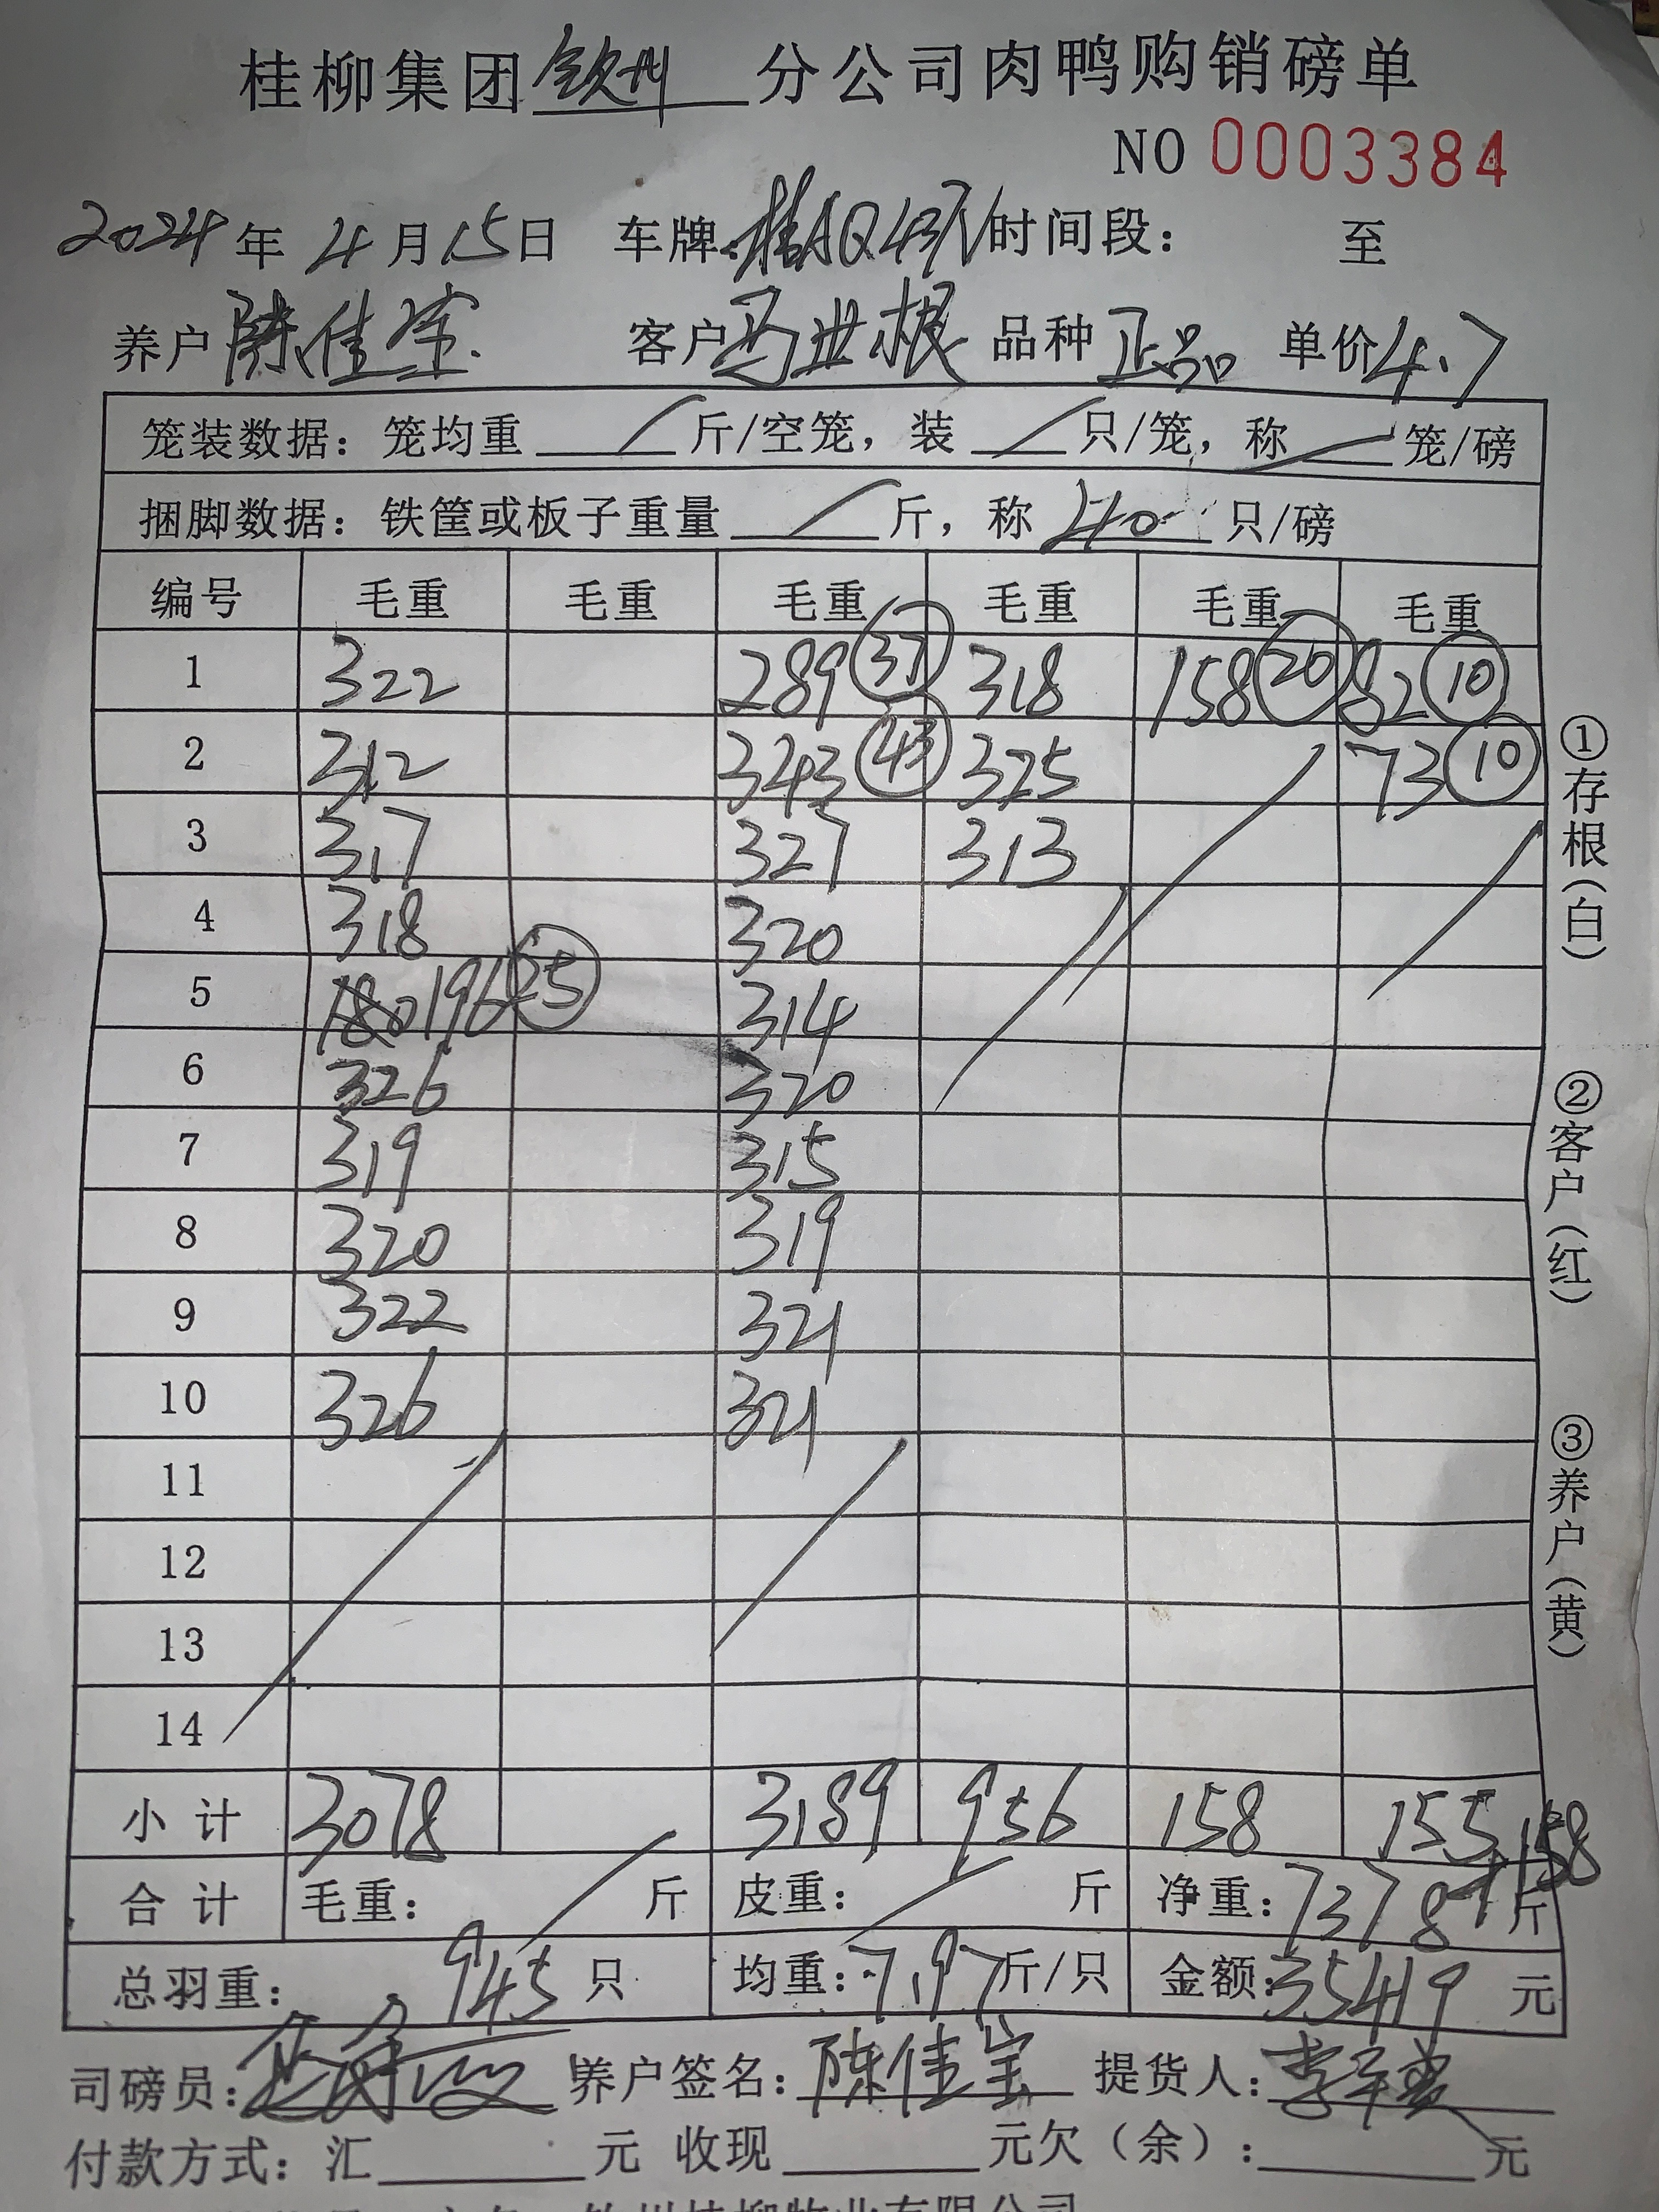 桂柳集团钦州分公司肉鸭购销磅单
NO 0003384
2024年4月15日 车牌:桂AQ 时间段: 至
养户陈佳宝 客户 业根 品种正品 单价4.7
笼装数据: 笼均重 / 斤/空笼, 装 / 只/笼, 称 / 笼/磅
捆脚数据: 铁筐或板子重量 / 斤, 称 40 只/磅
编号 毛重 毛重 毛重 毛重 毛重 毛重
1 322 289 37 318 158 20 82 10
2 312 343 43 325 73 10
3 317 327 313
4 318 320
5 180 196 25 314
6 326 320
7 319 315
8 320 319
9 322 321
10 326 321
11
12
13
14
小计 3078 3189 956 158 155
158
合计 毛重: / 斤 皮重: / 斤 净重: 7378 斤
总羽重: 945只 均重: 7.97斤/只 金额: 35419 元
司磅员: 养户签名: 陈佳宝 提货人: 李
付款方式: 汇 元 收现 元欠(余): 元
①存根(白)
②客户(红)
③养户(黄)